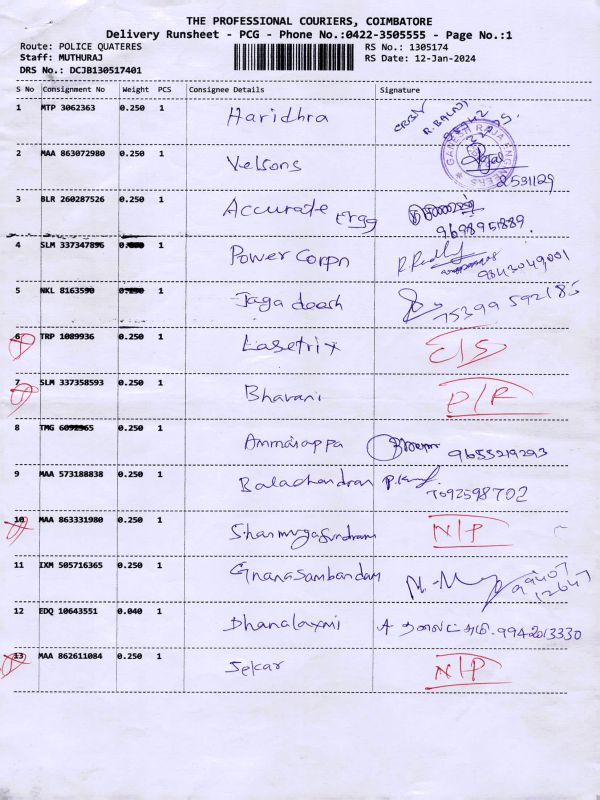 THE PROFESSIONAL COURIERS, COIMBATORE
Delivery Runsheet - PCG - Phone No.:0422-3505555 - Page No.:1
Route: POLICE QUATERES RS No.: 1305174
Staff: MUTHURAJ RS Date: 12-Jan-2024
DRS No.: DCJB130517401
S No Consignment No Weight PCS Consignee Details Signature
1 MTP 3062363 0.250 1 Haridhra R. BALAJI
GANESH RAJA ENGINEERS
2 MAA 863072980 0.250 1 Velsons 2531129
3 BLR 260287526 0.250 1 Accurate Engg 9698951889.
4 SLM 337347896 1 Power Corpn R. Reddy 9843049001
5 NKL 8163590 1 Jagadeesh 75399 59218
6 TRP 1089936 0.250 1 Lasetrix C/S
7 SLM 337358593 0.250 1 Bhavani P/R
8 TMG 0.250 1 Ammasappa 9655219293
9 MAA 573188838 0.250 1 Balachandran 7092598702
10 MAA 863331980 0.250 1 Shanmugasundram N/P
11 IXM 505716365 0.250 1 Gnanasambandam 99407 12647
12 EDQ 10643551 0.040 1 Dhanalaxmi 9942013330
13 MAA 862611084 0.250 1 Sekar N/P